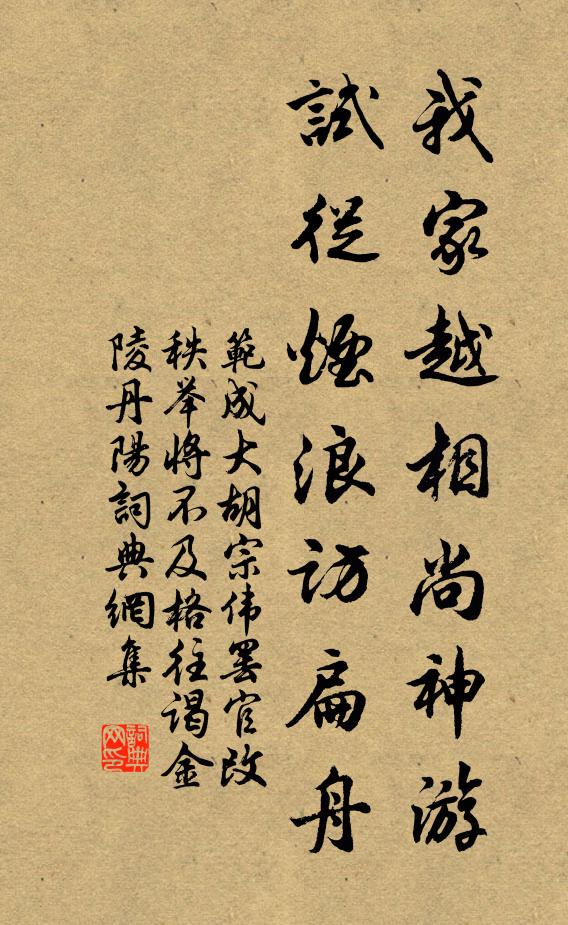 我家越相尚神游
試從煙浪訪扁舟
範成大胡宗伟罢官改
秩举将不及格往谒金
陵丹陽詞典網集
詞典网印